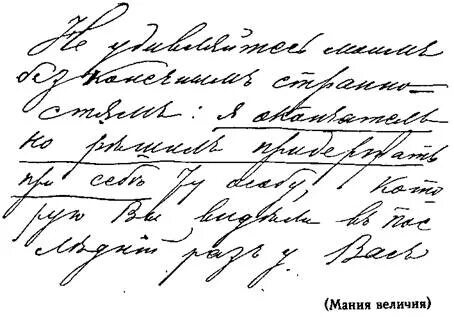 Не удивляйтесь моимъ
безконечнымъ странно-
стямъ: я окончатель
но рѣшилъ придержать
при себѣ ту особу, кото
рую Вы видѣли въ пос
лѣдній разъ у Васъ
(Мания величия)